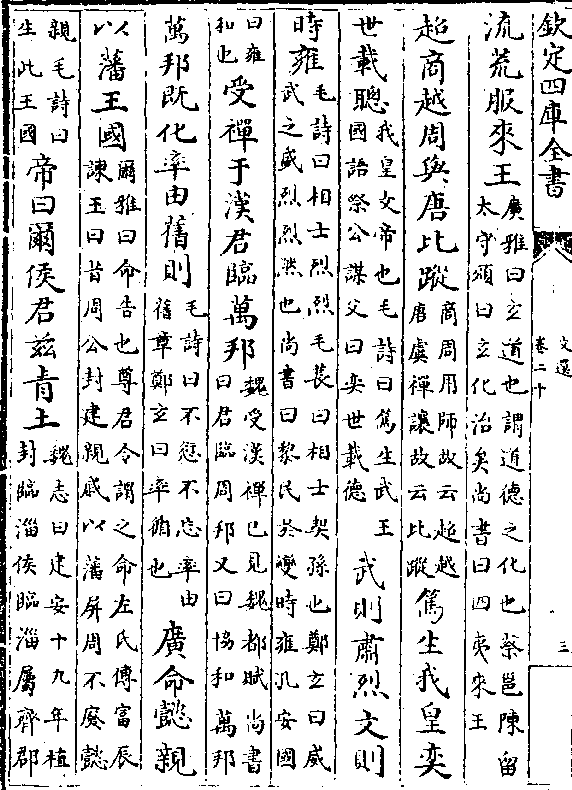 欽定四庫全書
文選
卷二十
三
流荒服來王
廣雅曰玄道也謂道德之化也蔡邕陳留
太守頌曰玄化洽矣尚書曰四夷來王
超商越周與唐比蹤
商周用師故云超越
唐虞禪讓故云比蹤
篤生我皇奕
世載聰
我皇文帝也毛詩曰篤生武王
國語祭公謀父曰奕世載德
武則肅烈文則
時雍
毛詩曰相士烈烈毛萇曰相士契孫也鄭玄曰威
武之盛烈烈然也尚書曰黎民於變時雍孔安國
曰雍
和也
受禪于漢君臨萬邦
魏受漢禪已見魏都賦尚書
曰君臨周邦又曰協和萬邦
萬邦既化率由舊則
毛詩曰不愆不忘率由
舊章鄭玄曰率循也
廣命懿親
以藩王國
爾雅曰命告也尊君令謂之命左氏傳富辰
諫王曰昔周公封建親戚以藩屏周不廢懿
親毛詩曰
生此王國
帝曰爾侯君兹青土
魏志曰建安十九年植
封臨淄侯臨淄屬齊郡